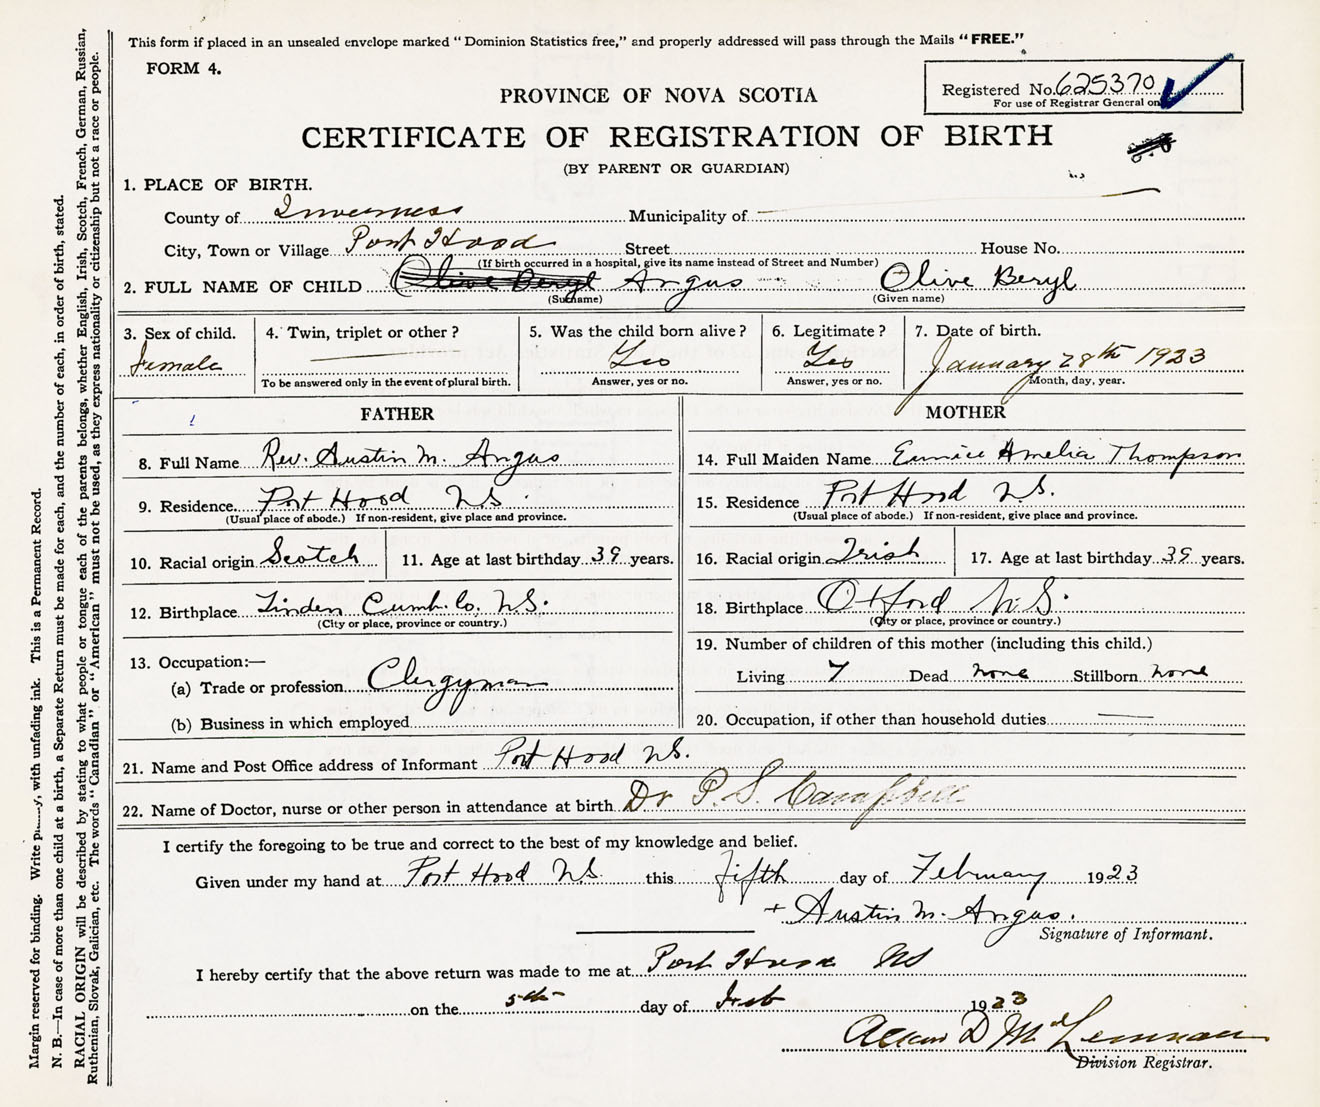 This form if placed in an unsealed envelope marked "Dominion Statistics free," and properly addressed will pass through the Mails "FREE."
FORM 4.
Registered No. 625370
For use of Registrar General on
PROVINCE OF NOVA SCOTIA
CERTIFICATE OF REGISTRATION OF BIRTH
(BY PARENT OR GUARDIAN)
1. PLACE OF BIRTH.
County of Inverness Municipality of —
City, Town or Village Port Hood Street House No.
(If birth occurred in a hospital, give its name instead of Street and Number)
2. FULL NAME OF CHILD Olive Beryl Angus Olive Beryl
(Surname) (Given name)
3. Sex of child. 4. Twin, triplet or other? 5. Was the child born alive? 6. Legitimate? 7. Date of birth.
Female — Yes Yes January 28th 1923
To be answered only in the event of plural birth. Answer, yes or no. Answer, yes or no. Month, day, year.
FATHER
8. Full Name Rev. Austin M. Angus
9. Residence. Port Hood N.S.
(Usual place of abode.) If non-resident, give place and province.
10. Racial origin Scotch 11. Age at last birthday 39 years.
12. Birthplace Linden Cumb. Co. N.S.
(City or place, province or country.)
13. Occupation:—
(a) Trade or profession Clergyman
(b) Business in which employed
MOTHER
14. Full Maiden Name Eunice Amelia Thompson
15. Residence Port Hood N.S.
(Usual place of abode.) If non-resident, give place and province.
16. Racial origin Irish 17. Age at last birthday 39 years.
18. Birthplace Oxford N.S.
(City or place, province or country.)
19. Number of children of this mother (including this child.)
Living 7 Dead none Stillborn none
20. Occupation, if other than household duties —
21. Name and Post Office address of Informant Port Hood N.S.
22. Name of Doctor, nurse or other person in attendance at birth Dr P. S. Campbell
I certify the foregoing to be true and correct to the best of my knowledge and belief.
Given under my hand at Port Hood N.S. this fifth day of February 1923
+ Austin M. Angus.
Signature of Informant.
I hereby certify that the above return was made to me at Port Hood NS
on the 5th day of Feb 1923
Allan D McLennan
Division Registrar.
Margin reserved for binding. Write with unfading ink. This is a Permanent Record.
N. B.—In case of more than one child at a birth, a Separate Return must be made for each, and the number of each, in order of birth, stated.
RACIAL ORIGIN will be described by stating to what people or tongue each of the parents belongs, whether English, Irish, Scotch, French, German, Russian,
Ruthenian, Slovak, Galician, etc. The words "Canadian" or "American" must not be used, as they express nationality or citizenship but not a race or people.